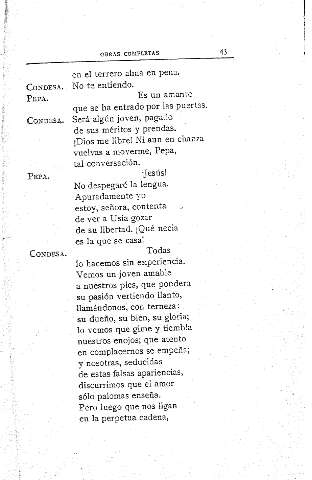 OBRAS COMPLETAS 43
en el terrero alma en pena.
CONDESA. No te entiendo.
PEPA. Es un amante
que se ha entrado por las puertas.
CONDESA. Será algún joven, pagado
de sus méritos y prendas.
¡Dios me libre! Ni aun en chanza
vuelvas a moverme, Pepa,
tal conversación.
PEPA. ¡Jesús!
No despegaré la lengua.
Apuradamente yo
estoy, señora, contenta
de ver a Usía gozar
de su libertad. ¡Qué necia
es la que se casa!
CONDESA. Todas
lo hacemos sin experiencia.
Vemos un joven amable
a nuestros pies, que pondera
su pasión vertiendo llanto,
llamándonos, con terneza:
su dueño, su bien, su gloria;
lo vemos que gime y tiembla
nuestros enojos; que atento
en complacernos se empeña;
y nosotras, seducidas
de estas falsas apariencias,
discurrimos que el amor
sólo palomas enseña.
Pero luego que nos ligan
en la perpetua cadena,